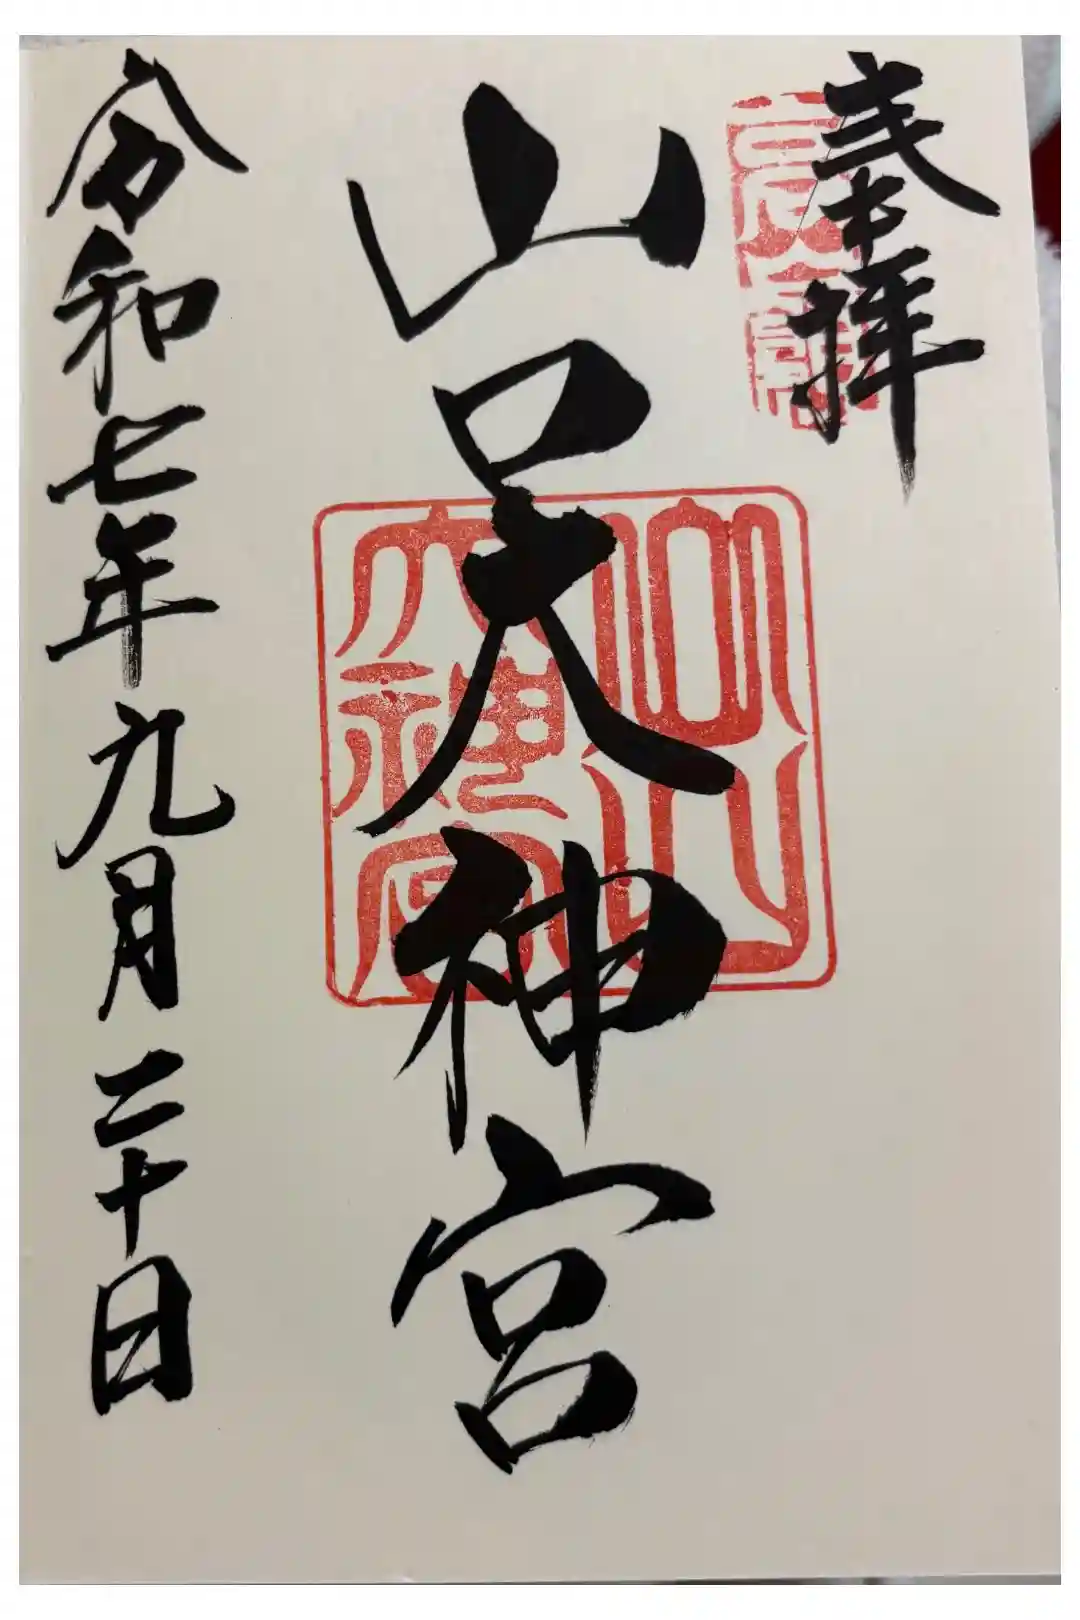 奉拝
山口大神宮
山口
大神宮
令和七年九月二十日